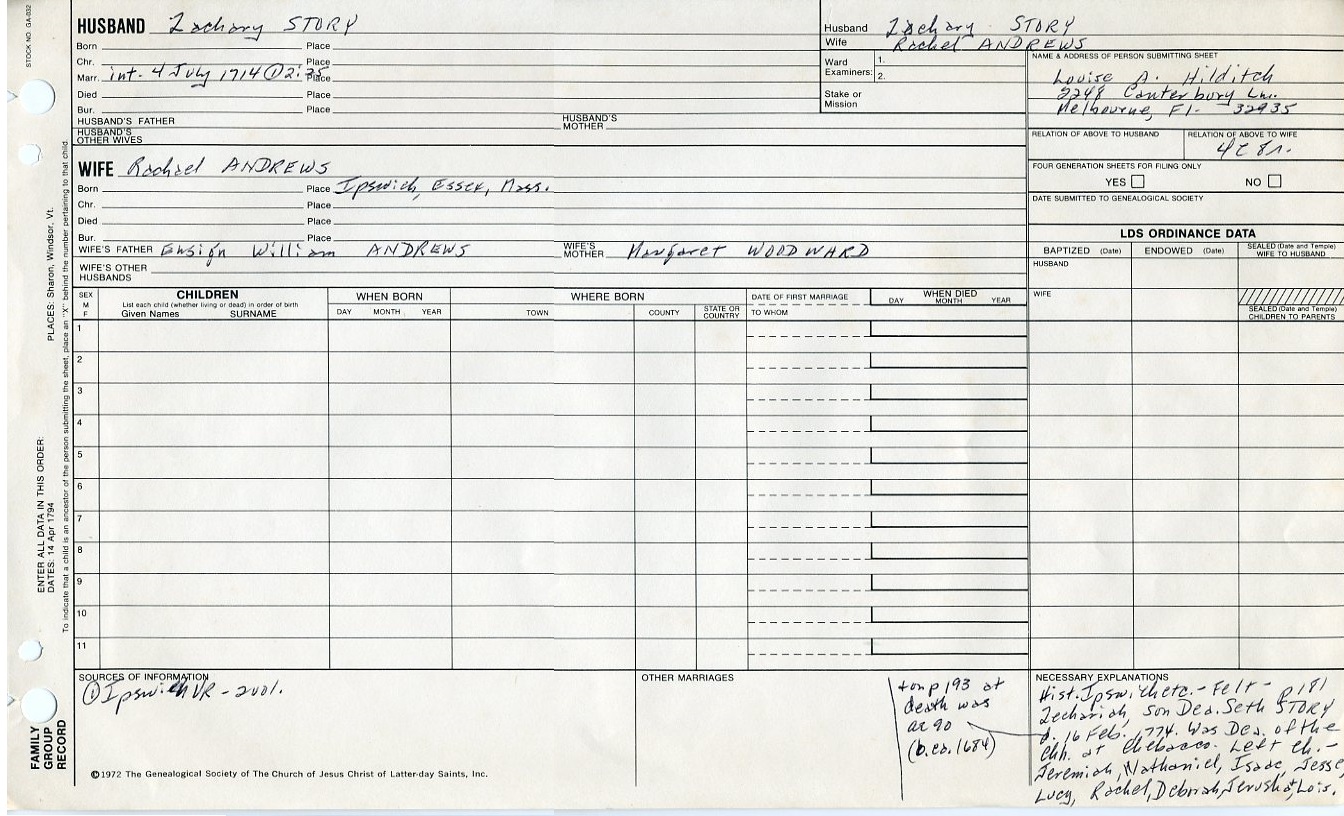 STOCK NO. GA-032
HUSBAND Zachary STORY
Born Place
Chr. Place
Marr. int. 4 July 1714 ① 2: Place
Died Place
Bur. Place
HUSBAND'S FATHER HUSBAND'S MOTHER
HUSBAND'S OTHER WIVES
Husband Zachary STORY
Wife Rachel ANDREWS
Ward Examiners: 1.
2.
Stake or Mission
NAME & ADDRESS OF PERSON SUBMITTING SHEET
Louise A. Hilditch
2248 Canterbury Ln.
Melbourne, Fl- 32935
RELATION OF ABOVE TO HUSBAND RELATION OF ABOVE TO WIFE
FOUR GENERATION SHEETS FOR FILING ONLY
YES NO
DATE SUBMITTED TO GENEALOGICAL SOCIETY
WIFE Rachael ANDREWS
Born Place Ipswich, Essex, Mass.
Chr. Place
Died Place
Bur. Place
WIFE'S FATHER Ensign William ANDREWS WIFE'S MOTHER Margaret WOODWARD
WIFE'S OTHER HUSBANDS
LDS ORDINANCE DATA
BAPTIZED (Date) ENDOWED (Date) SEALED (Date and Temple) WIFE TO HUSBAND
HUSBAND
WIFE
SEALED (Date and Temple) CHILDREN TO PARENTS
SEX M F
CHILDREN
List each child (whether living or dead) in order of birth
Given Names SURNAME
WHEN BORN
DAY MONTH YEAR
WHERE BORN
TOWN COUNTY STATE OR COUNTRY
DATE OF FIRST MARRIAGE
TO WHOM
WHEN DIED
DAY MONTH YEAR
1
2
3
4
5
6
7
8
9
10
11
SOURCES OF INFORMATION
① Ipswich VR - 2001.
OTHER MARRIAGES
+ on p 193 at
death was
ae 90
(b. ca. 1684)
NECESSARY EXPLANATIONS
Hist. Ipswich etc. - Felt - p 181
Zechariah, son Dea. Seth STORY
d. 16 Feb. 1774. Was Dea. of the
chh. at Chebacco. Left ch. -
Jeremiah, Nathaniel, Isaac, Jesse
Lucy, Rachel, Deborah, Jerusha, Lois.
©1972 The Genealogical Society of The Church of Jesus Christ of Latter-day Saints, Inc.
FAMILY GROUP RECORD
ENTER ALL DATA IN THIS ORDER:
DATES: 14 Apr 1794
PLACES: Sharon, Windsor, Vt.
To indicate that a child is an ancestor of the person submitting the sheet, place an "X" behind the number pertaining to that child.